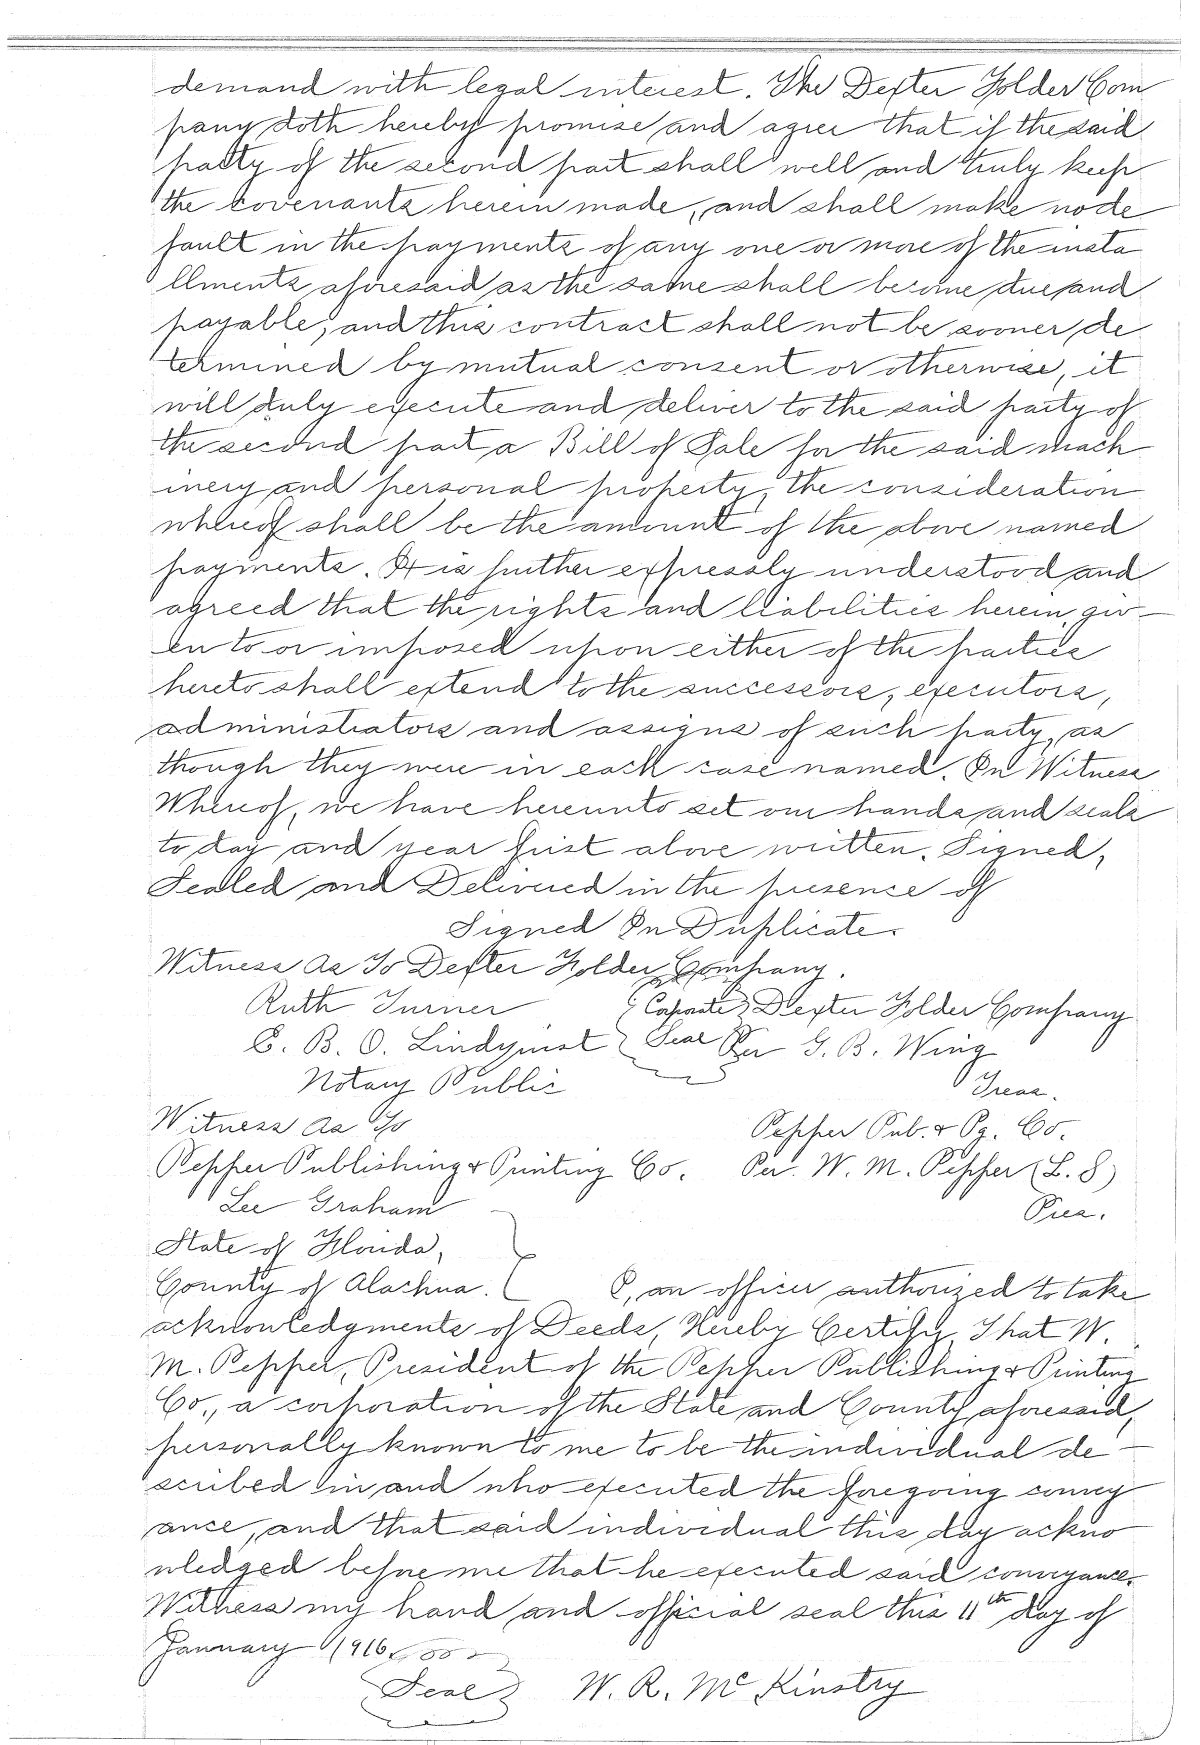 demand with legal interest. The Dexter Folder Com
pany doth hereby promise and agree that if the said
party of the second part shall well and truly keep
the covenants herein made, and shall make no de
fault in the payments of any one or more of the insta
llments aforesaid as the same shall become due and
payable, and this contract shall not be sooner de
termined by mutual consent or otherwise, it
will duly execute and deliver to the said party of
the second part a Bill of Sale for the said mach
inery and personal property, the consideration
whereof shall be the amount of the above named
payments. It is further expressly understood and
agreed that the rights and liabilities herein giv-
en to or imposed upon either of the parties
hereto shall extend to the successors, executors,
administrators and assigns of such party, as
though they were in each case named. In Witness
Whereof, we have hereunto set our hands and seals
to day and year first above written. Signed,
Sealed and Delivered in the presence of
Signed In Duplicate.
Witness As To Dexter Folder Company.
Ruth Turner (Corporate) Dexter Folder Company
E. B. O. Lindquist Seal Per G. B. Wing
Notary Public Treas.
Witness As To Pepper Pub. & Pg. Co.
Pepper Publishing & Printing Co. Per. W. M. Pepper (L.S)
Lee Graham Pres.
State of Florida,
County of Alachua. I, an officer authorized to take
acknowledgments of Deeds, Hereby Certify, That W.
M. Pepper, President of the Pepper Publishing & Printing
Co., a corporation of the State and County aforesaid,
personally known to me to be the individual de-
scribed in and who executed the foregoing convey
ance, and that said individual this day ackno
wledged before me that he executed said conveyance.
Witness my hand and official seal this 11th day of
January 1916.
Seal W. R. McKinstry